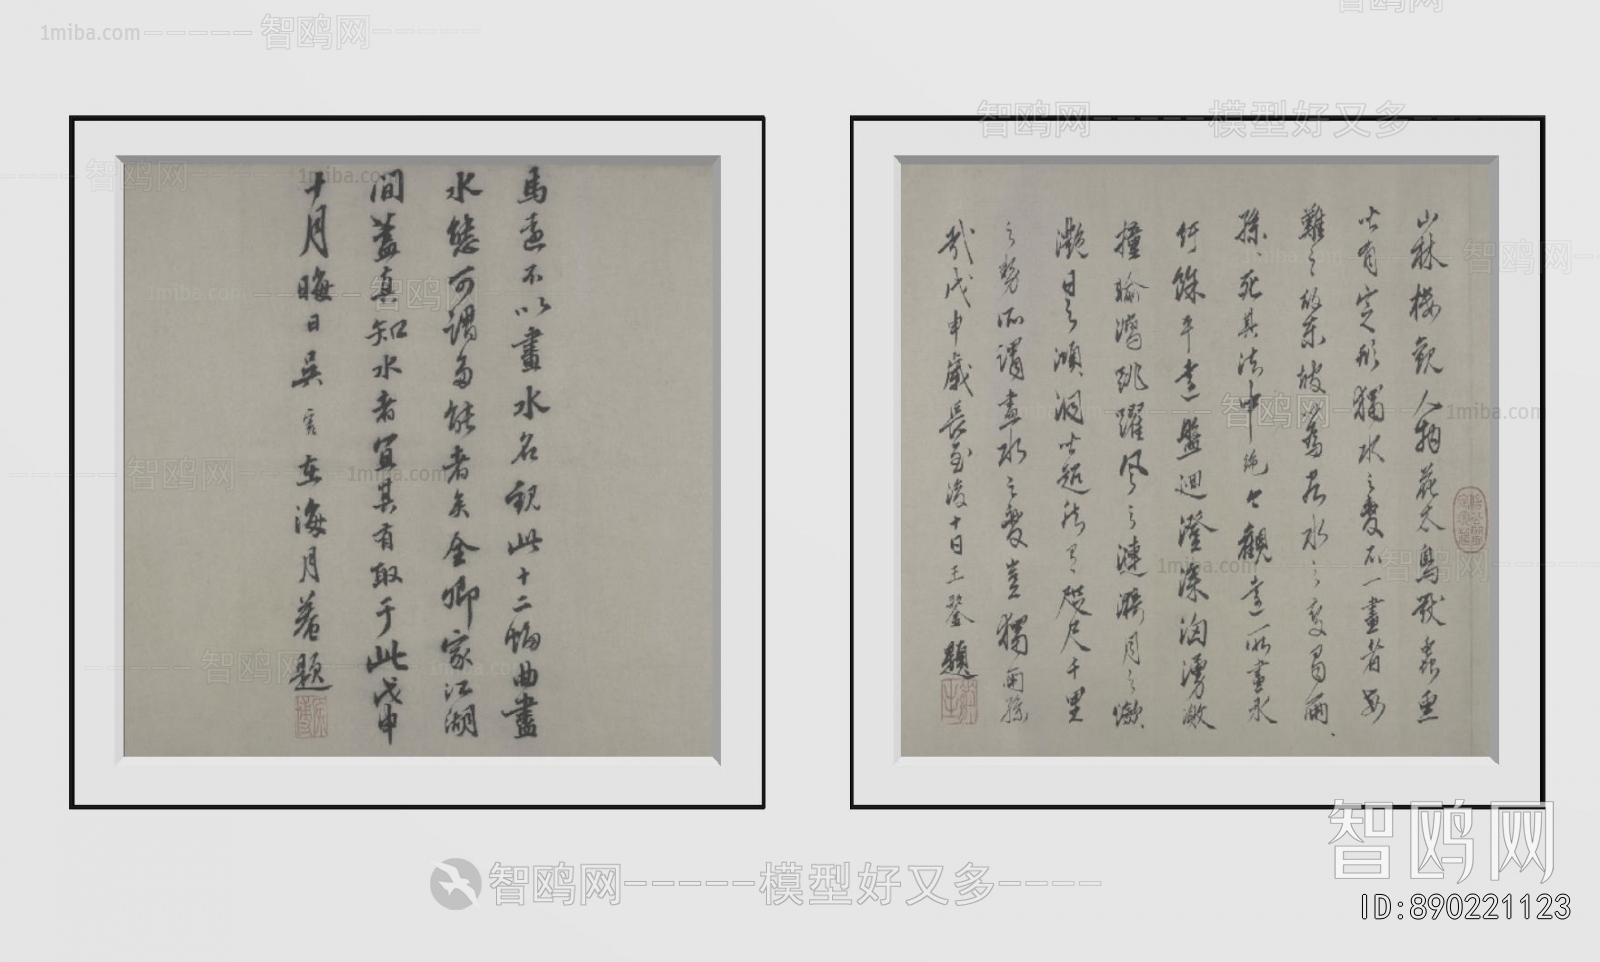 1miba.com
智鸥网
智鸥网
模型好又多
馬遠不以畫水名觀此十二幅曲盡
水態可謂多能者矣全卿家江湖
間蓋真知水者宜其有取于此戊申
十月晦日吳寬在海月菴題
山林樓觀人物花木鳥獸蟲魚
皆有定形獨水之變不一畫者每
難之故東坡水之變蜀兩
孫死其法中絕今觀遠所畫水
紆餘平遠盤迴澄深洶湧激
撞輸瀉跳躍風之漣漪月之瀲
灩日之澒洞皆超然有咫尺千里
之勢所謂盡水之變豈獨兩孫
哉戊申歲長至後十日王鏊題
智鸥网
模型好又多
智鸥网
ID:890221123